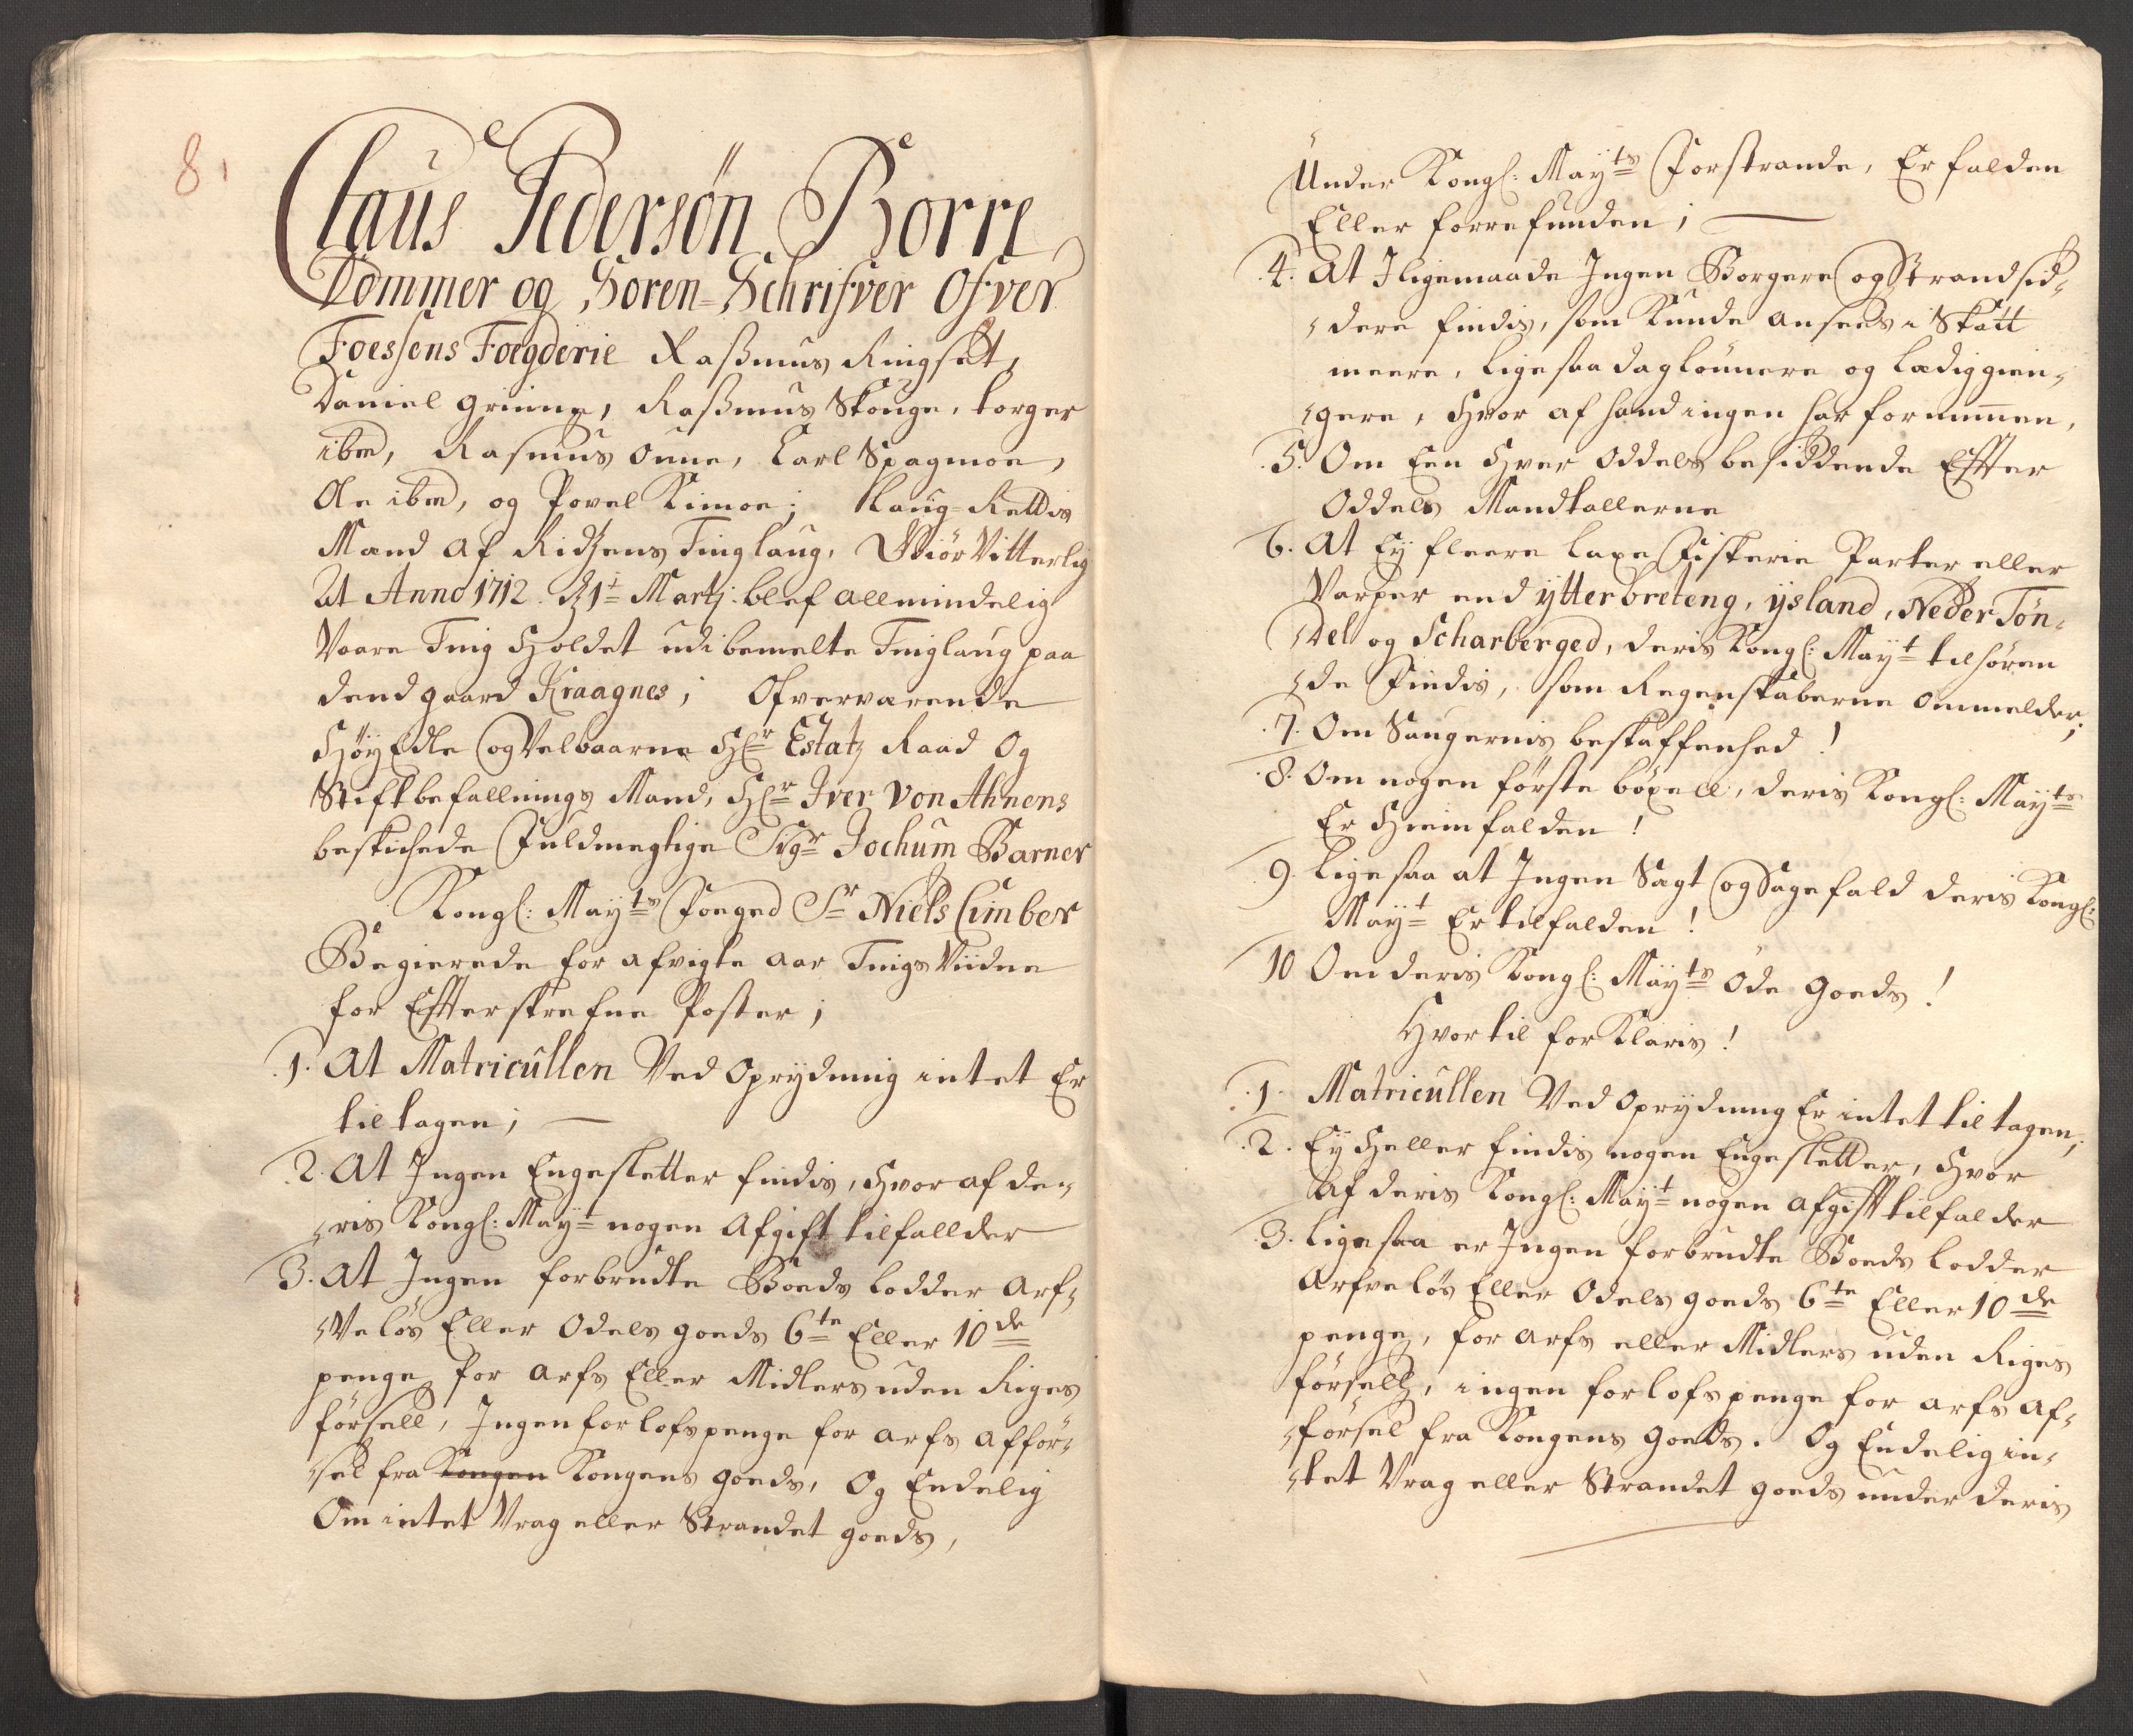 8
Claus Pedersøn Borre
Dommer og Soren-Schrifver Ofver
Foessens Foegderie Rasmus Ringset,
Daniel Griing, Rasmus Skouge, torger
ibm, Rasmus Oune, Carl Spagmoe,
Ole ibm, og Povel Kimoe; Laug-Rettis
Mænd af Ridsens Tinglaug, Giör Vitterlig
At Anno 1712. d 1t Martj: blef allmindelig
Vaare Ting Holdet udi bemelte Tinglaug paa
dend gaard Kraagnes; Ofverværende
HöyEdle og Velbaarne Hr Estatz Raad Og
Stiftbefallnings Mand, Hr Iver Von Ahnens
beskichede Fuldmegtige Sigr Jochum Barner
Kongl: Mayts Foeged Sr Niels Cimber
Begierede for afvigte Aar Tings Vidne
for Effterskrefne Poster;
1. At Matricullen Ved Oprydning intet Er
tiltagen;
2. At Ingen Engesletter findis, Hvor af de-
ris Kongl: Mayt nogen Afgift tilfallder
3. At Ingen forbrudte Boeds lodder Arf-
Velös Eller Odels goeds 6te Eller 10de
penge for Arfs Eller Midlers uden Riges
förssell, Ingen forlofspenge for Arfs Afför-
sel fra Kongen Kongens goeds, Og Endelig
Om intet Vrag eller Strandet goeds,
Under Kongl: Mayts Forstrande, Er falden
Eller forrefunden;
4. At I ligemaade Ingen Borgere og Strandsid-
dere findis, som Kunde ansees i Skatt
meere, lige saa daglönnere og lædiggien-
gere, Hvor af hand ingen har fornummen,
5. Om Een Hver Oddels besiddende Effter
Oddels Mandtallerne
6. At Ey fleere laxe Fiskerie Parter eller
Varper end ytterbreteng, ysland, Neder Tön-
del og Scharberged, deris Kongl: Mayt tilhören
de Findis, som Regenskaberne ommelder;
7. Om Saugernis beskaffenhed!
8. Om nogen förste böxell, deris Kongl: Mayts
Er Hiemfalden!
9. Lige saa at Ingen Sagt og Sagefald deris Kongl:
Mayt Er tilfalden!
10 Om deris Kongl: Mayts Öde Goeds!
Hvortil forKlaris!
1. Matricullen Ved Oprydning Er intet tiltagen;
2. Ey Heller findis nogen Engesletter, Hvor
af deris Kongl: Mayt nogen afgifft tilfalder
3. Lige saa er Ingen forbrudte Boeds lodder
Arfvelös Eller Odels goeds 6te Eller 10de
penge, for Arfs eller Midlers uden Riges
förssell, ingen forlofspenge for Arfs Af-
försel fra Kongens Goeds. Og Endelig in-
tet Vrag eller Strandet goeds under deris